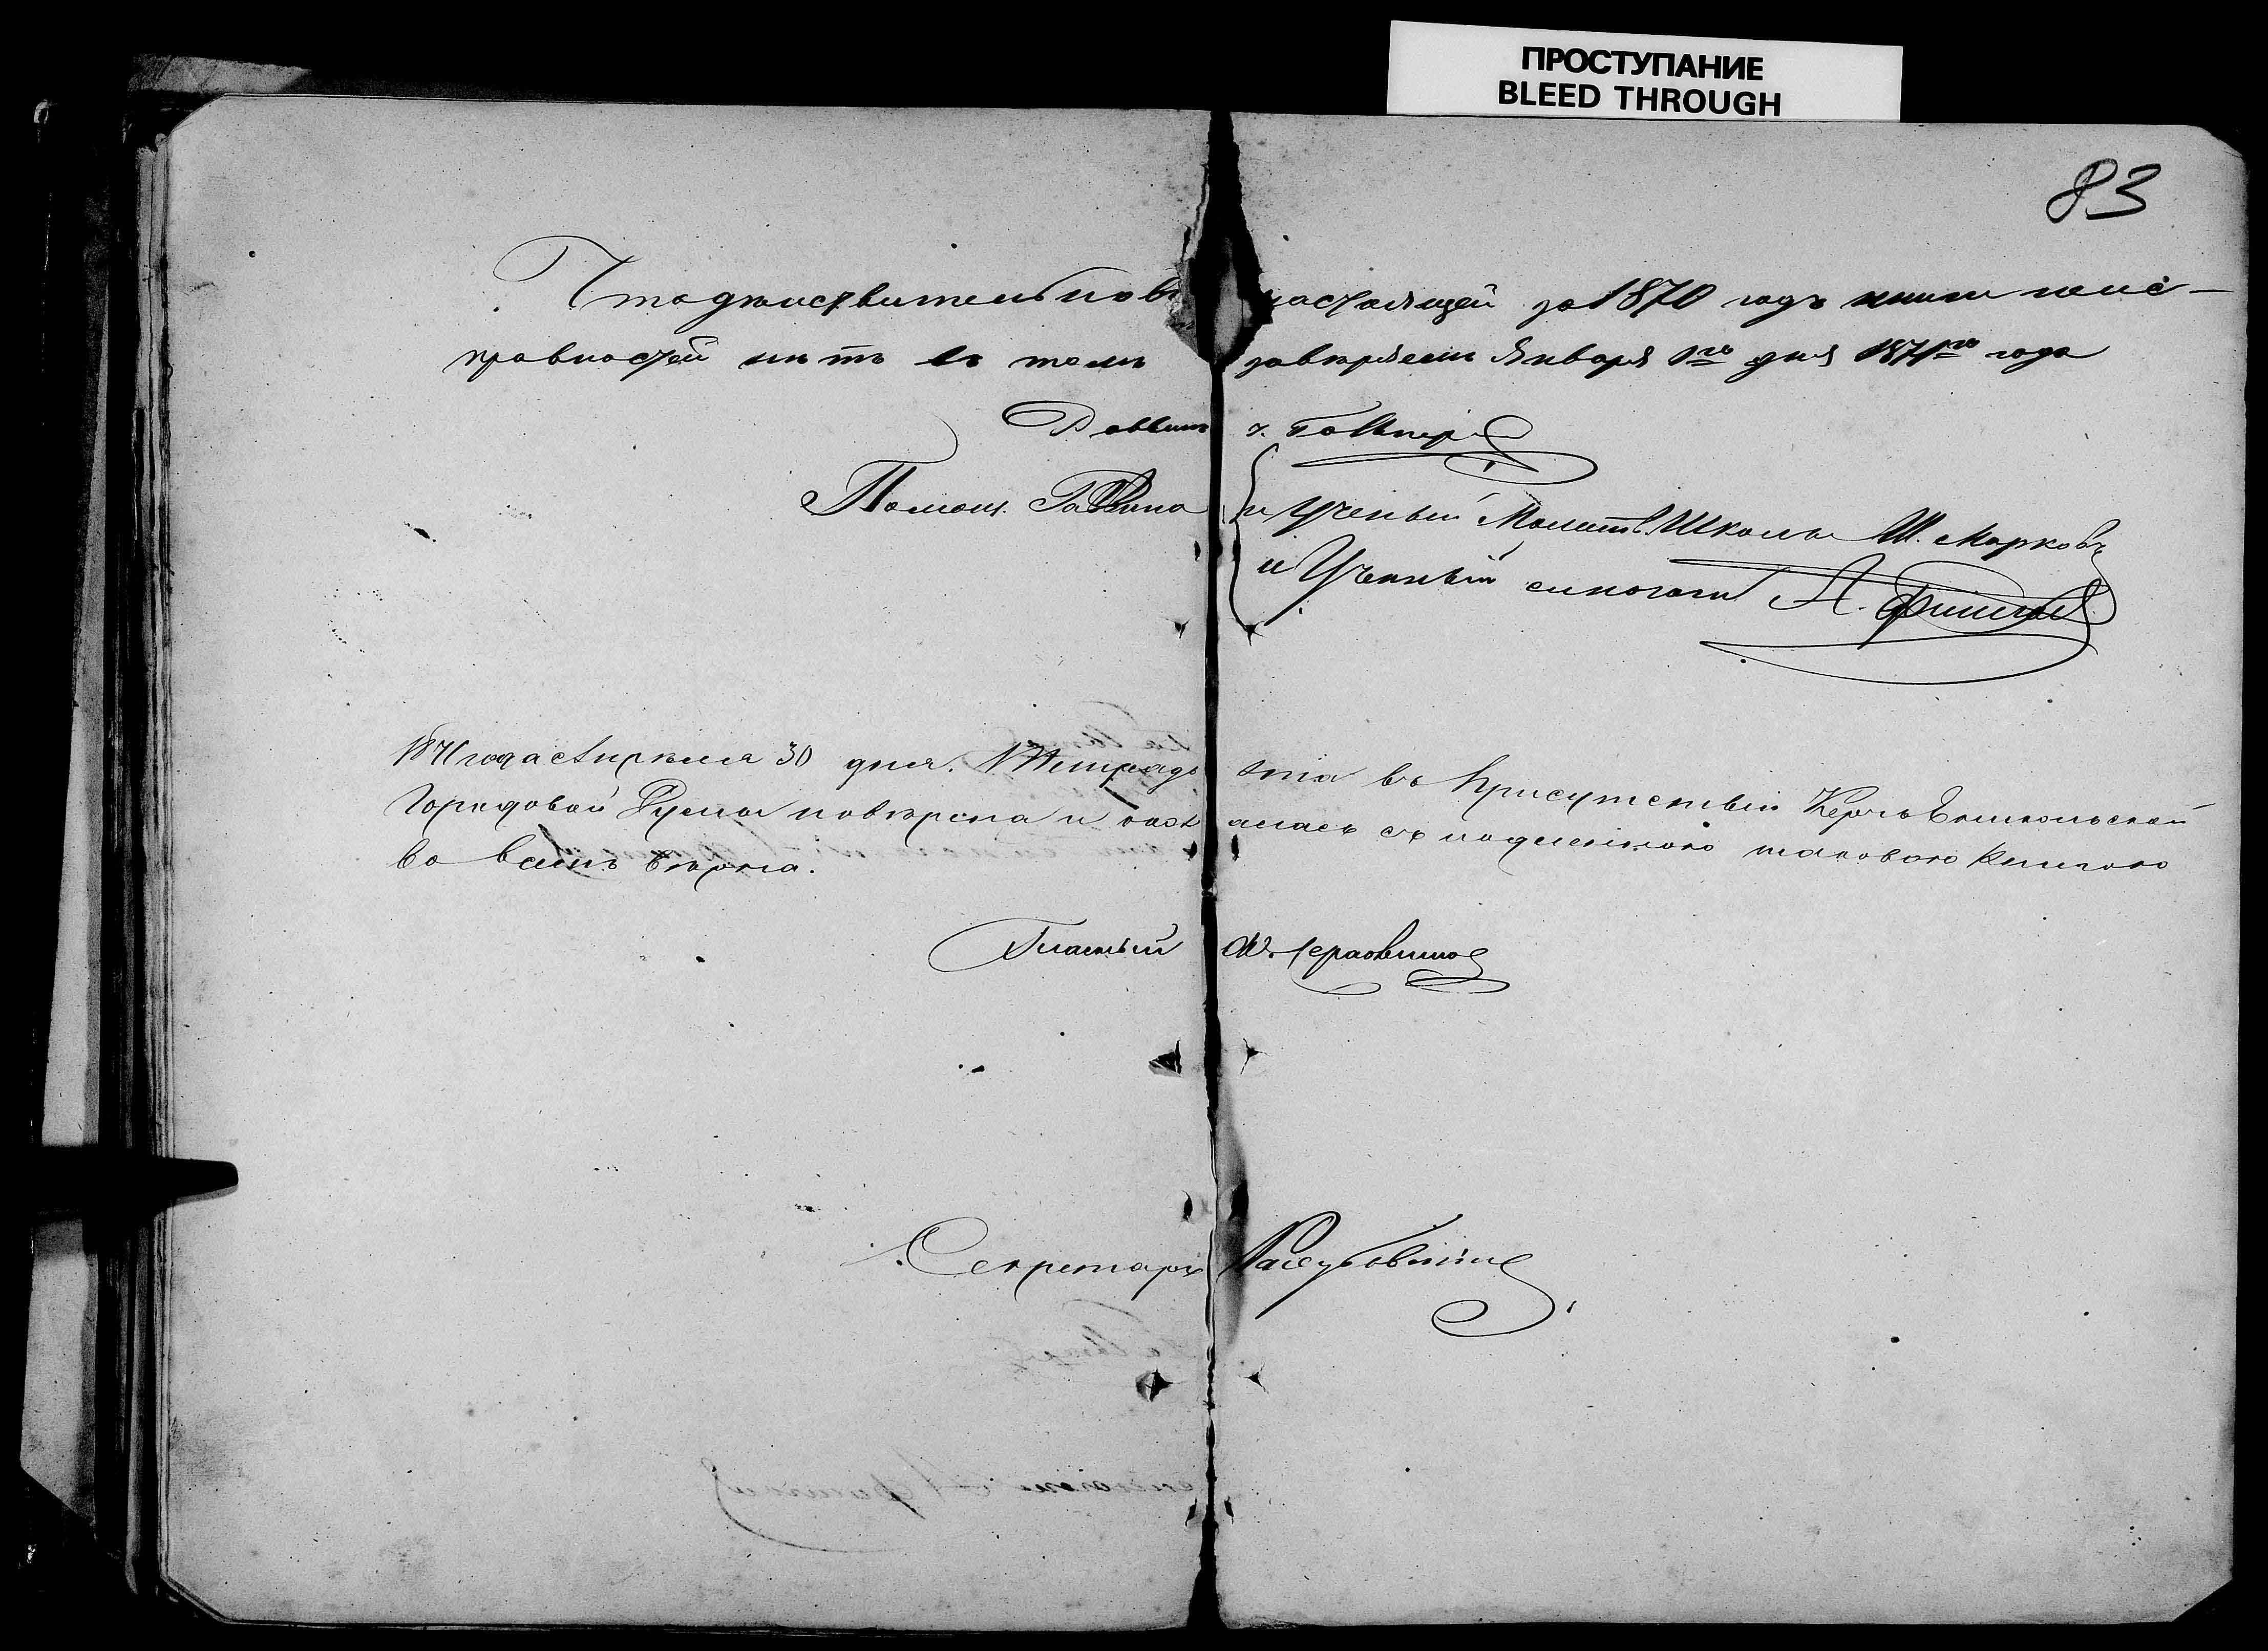 ПРОСТУПАНИЕ
BLEED THROUGH
83
Что действительно въ настоящей за 1870 годъ книги неис-
правностей нѣтъ въ томъ завѣряемъ Января 1го дня 1871го года
Раввинъ
Помощ. Раввина и Ученый Молитв. Школы Ш. Марковъ
и Ученный синогоги А.
1871 года Апрѣля 30 дня. Метрика эта въ присутствіи Керчь Еникольской
Городовой Думы повѣрена и оказалась съ подленною таковою книгою
во всемъ вѣрна.
Гласный
Секретарь